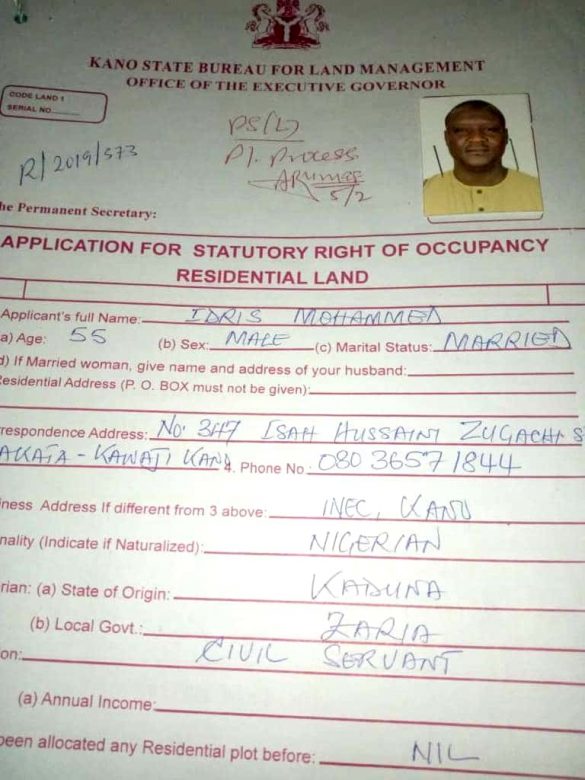 KANO STATE BUREAU FOR LAND MANAGEMENT
OFFICE OF THE EXECUTIVE GOVERNOR
CODE LAND 1
SERIAL NO.
R/2019/573
PS(L)
Pl. Process
5/2
he Permanent Secretary:
APPLICATION FOR STATUTORY RIGHT OF OCCUPANCY
RESIDENTIAL LAND
Applicant's full Name: IDRIS MOHAMMED
a) Age: 55 (b) Sex: MALE (c) Marital Status: MARRIED
d) If Married woman, give name and address of your husband:
Residential Address (P. O. BOX must not be given):
rrespondence Address: No. 347 ISAH HUSSAINI ZUGACHI S
AKATA - KAWAJI KANO 4. Phone No. 080 3657 1844
iness Address If different from 3 above: INEC, KANO
nality (Indicate if Naturalized): NIGERIAN
rian: (a) State of Origin: KADUNA
(b) Local Govt.: ZARIA
on: CIVIL SERVANT
(a) Annual Income:
been allocated any Residential plot before: NIL